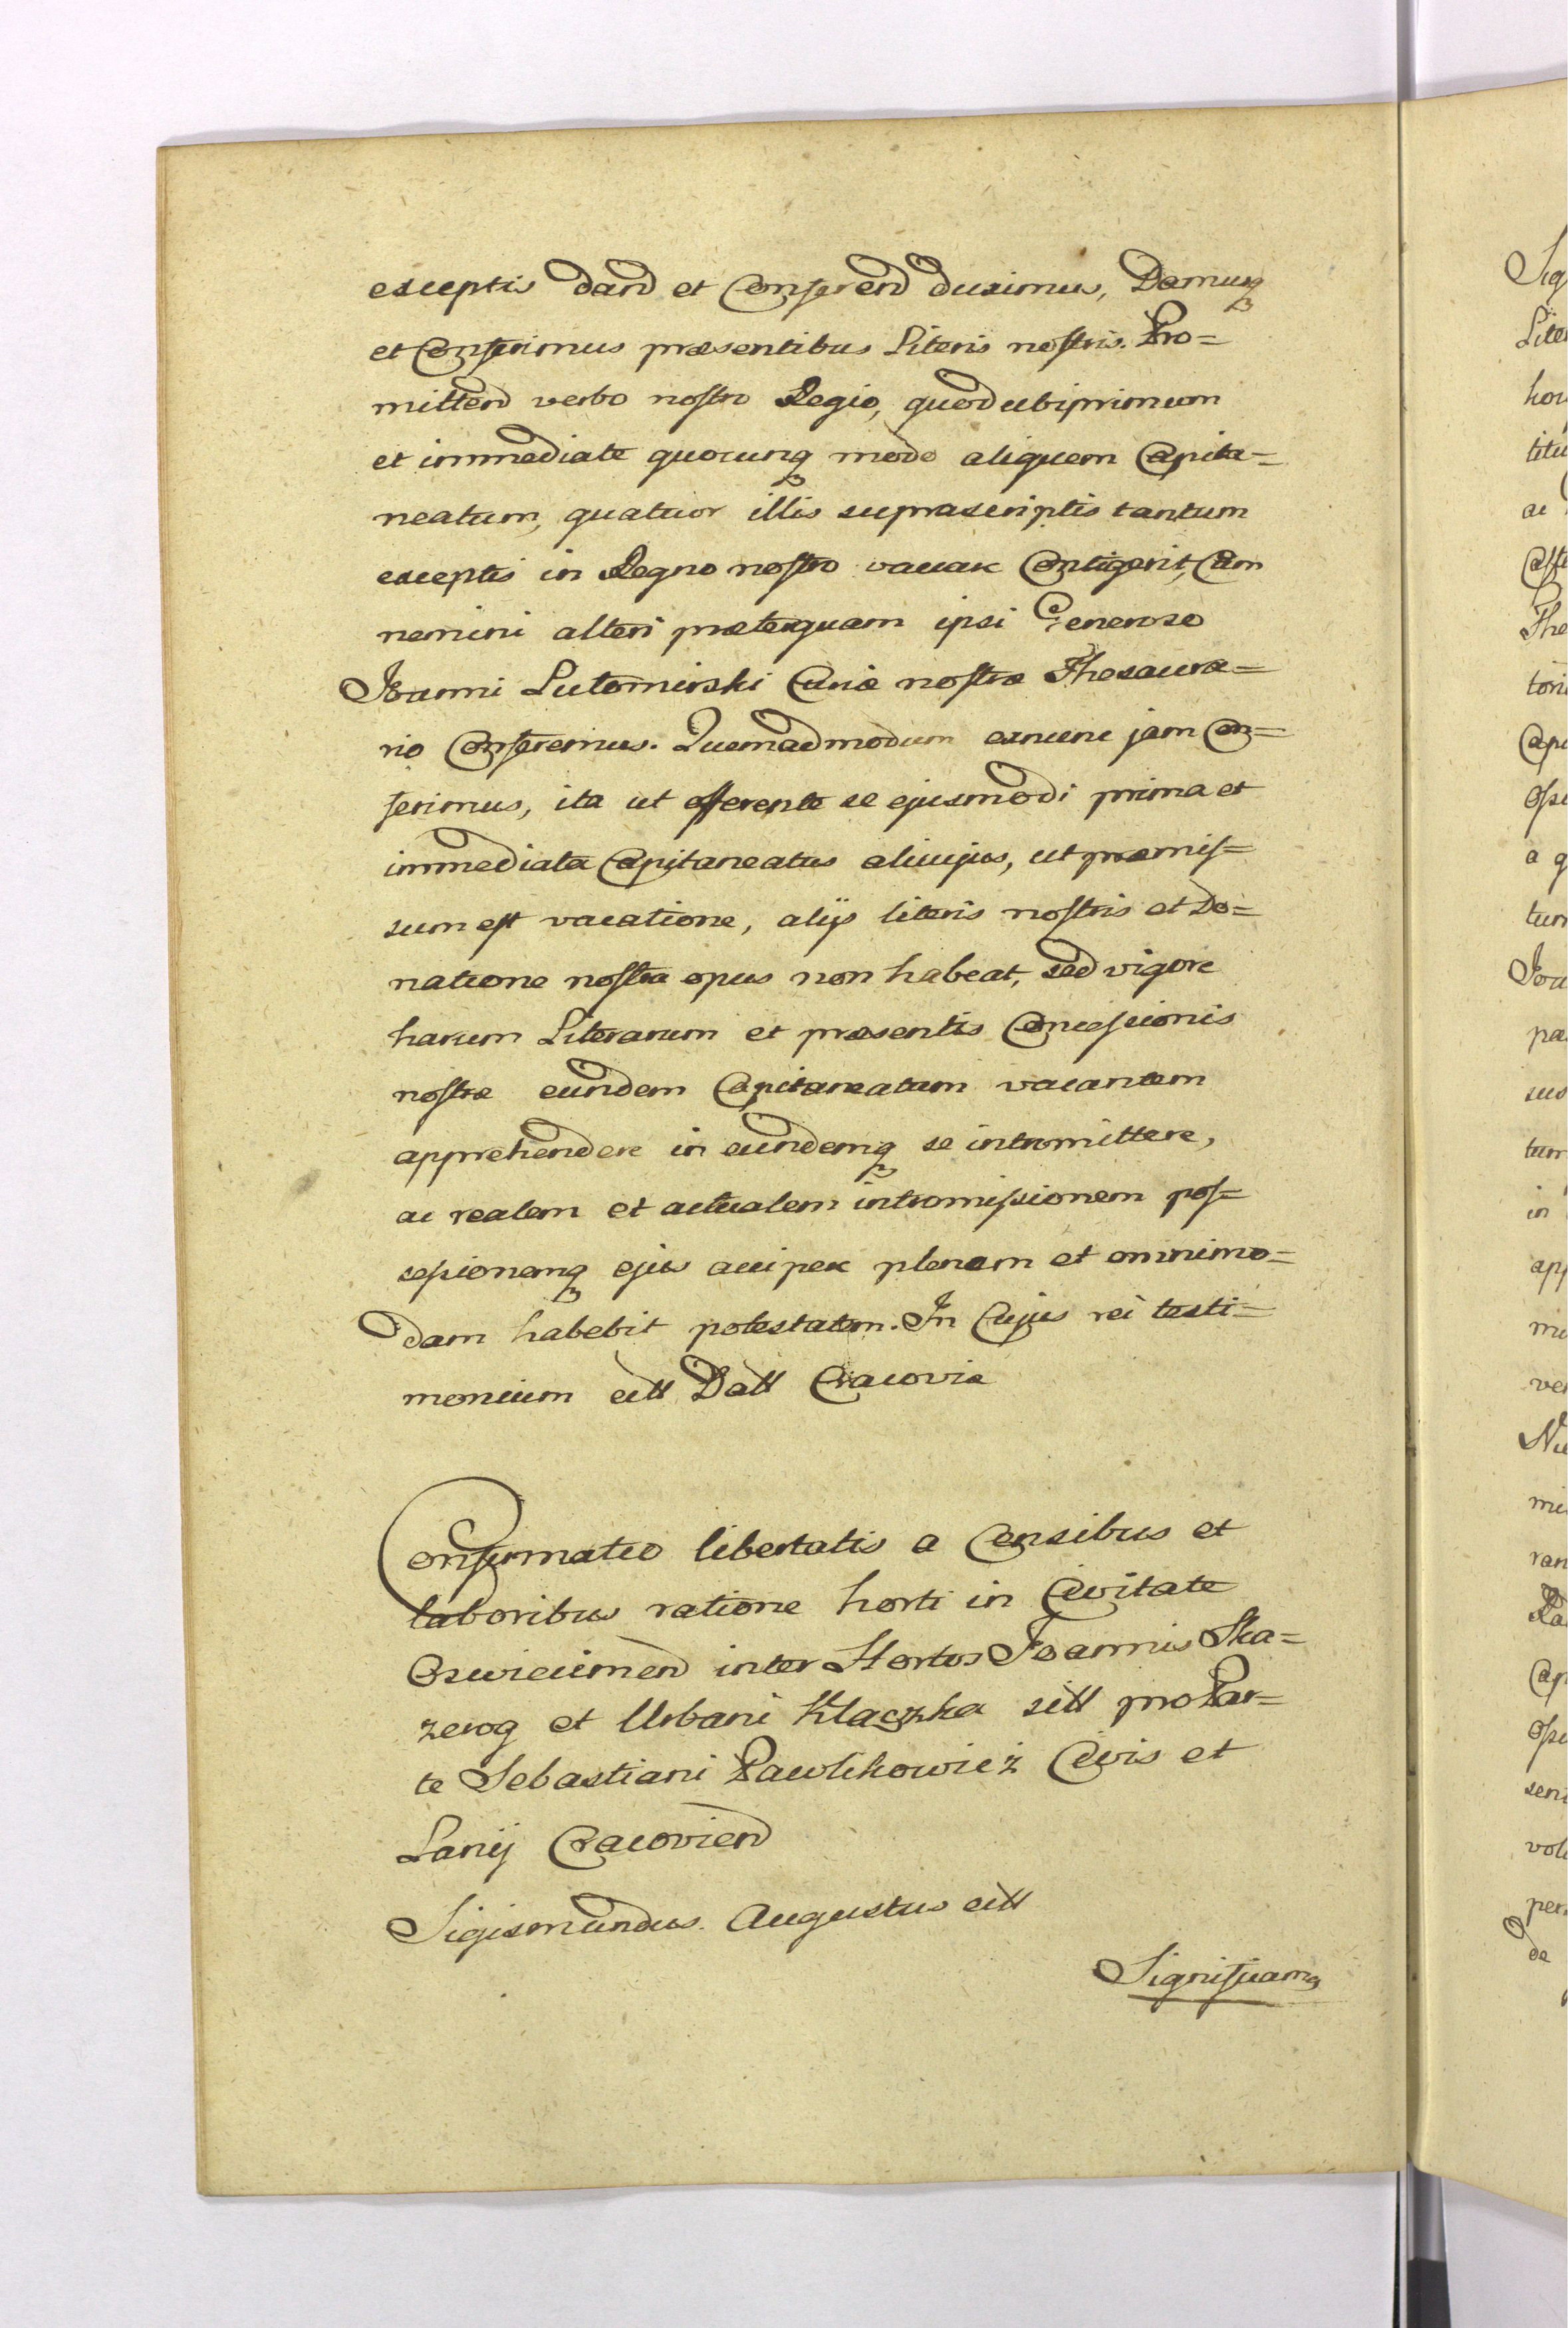 exceptis dand et Conferend duximus, Damusq
et Conferimus præsentibus Literis nostris. Pro=
mittend verbo nostro Regio, quod ubiprimum
et immediate quocunq modo aliquem Capita=
neatum, quatuor illis suprascriptis tantum
exceptis in Regno nostro vacare Contigerit, Eum
nemini alteri præterquam ipsi Generoso
Joanni Lutomirski Curiæ nostræ Thesaura=
rio Conferemus. Quemadmodum exnunc jam Con=
ferimus, ita ut offerente se ejusmodi prima et
immediata Capitaneatus alicujus, ut præmis=
sum est vacatione, alijs literis nostris et Do=
natione nostra opus non habeat, sed vigore
harum Literarum et præsentis Concessionis
nostræ eundem Capitaneatum vacantem
apprehendere in eundemq se intromittere,
ac realem et actualem intromissionem pos=
sessionemq ejus accipere plenam et omnimo=
dam habebit potestatem. In Cujus rei testi=
monium ett Datt Cracoviæ
Confirmatio libertatis a Censibus et
laboribus ratione horti in Civitate
Oswiecimend inter Hortos Joannis Ska=
zerog et Urbani Klaczka sitt pro Par=
te Sebastiani Pawlikowicz Civis et
Lanij Cracoviend
Sigismundus Augustus ett
Significamq
Sig
Liter
hor
titu
ac
The
tori
Capi
a q
tum
Joa
pa
suo
tum
in
app
mi
ver
Nu
mi
ran
Ra
Cap
seni
volu
per
de